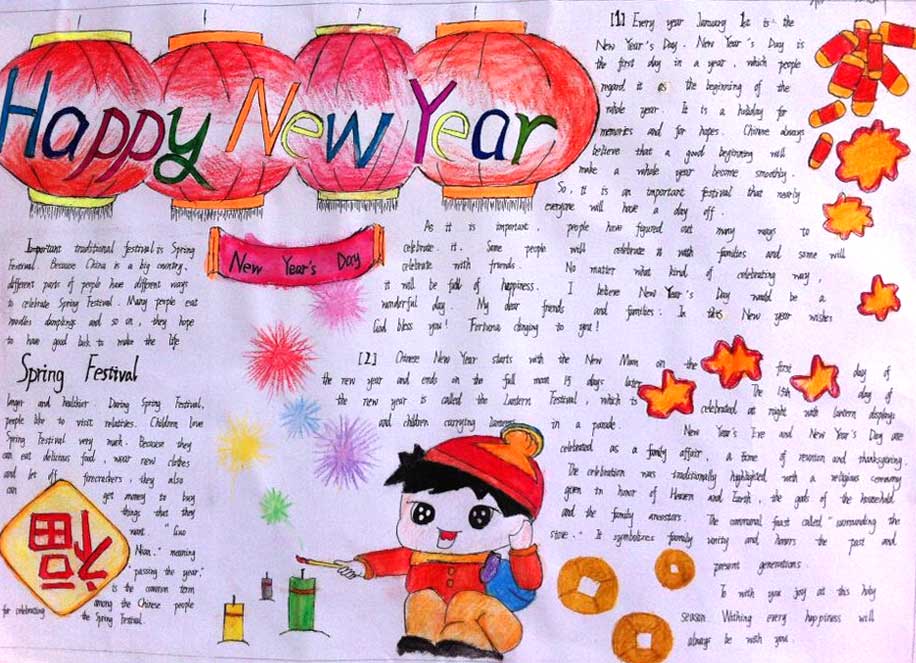 Happy New Year
[1] Every year January 1st is the
New Year's Day. New Year's Day is
the first day in a year, which people
regard it as the beginning of the
whole year. It is a holiday for
memories and for hopes. Chinese always
believe that a good beginning will
make a whole year become smoothly.
So, it is an important festival that nearly
everyone will have a day off.
As it is important, people have figured out many ways to
celebrate it. Some people will celebrate it with families and some will
celebrate with friends. No matter what kind of celebrating way,
it will be full of happiness. I believe New Year's Day would be a
wonderful day. My dear friends and families. In this New year wishes
God bless you! Fortuna clinging to you!
New Year's Day
Important traditional festival is Spring
Festival. Because China is a big country,
different parts of people have different ways
to celebrate Spring Festival. Many people eat
noodles dumplings and so on, they hope
to have good luck to make the life
Spring Festival
longer and healthier. During Spring Festival,
people like to visit relatives. Children love
Spring Festival very much. Because they
can eat delicious food wear new clothes
and let off firecrackers, they also
can get money to buy
things that they
want. "Guo
Nian," meaning
"passing the year,"
is the common term
among the Chinese people
for celebrating the Spring Festival.
福
[2] Chinese New Year starts with the New Moon on the first day of
the new year and ends on the full moon 15 days later. The 15th day of
the new year is called the Lantern Festival, which is celebrated at night with lantern displays
and children carrying lanterns in a parade. New Year's Eve and New Year's Day are
celebrated as a family affair, a time of reunion and thanksgiving.
The celebration was traditionally highlighted with a religious ceremony
given in honor of Heaven and Earth, the gods of the household
and the family ancestors. The communal feast called "surrounding the
stove." It symbolizes family unity and honors the past and
present generations.
To wish you joy at this holy
season. Wishing every happiness will
always be with you.